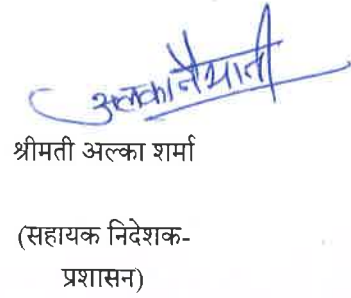 श्रीमती अल्का शर्मा
(सहायक निदेशक-
प्रशासन)